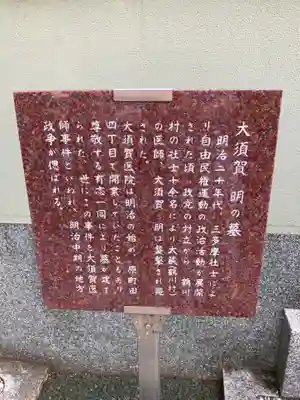 大須賀 明の墓
明治二十年代、三多摩壮士によ
り自由民権運動の政治活動が展開
された頃、政党の対立から、鶴川
村の壮士十余名により大蔵(鶴川村)
の医師、大須賀 明は襲撃され殺
された。
大須賀医院は明治の始め、原町田
四丁目で開業していたこともあり
尊敬する有志一同により墓が建て
られた。世にこの事件を大須賀医
師事件といわれ、明治中期の地方
政争が偲ばれる。